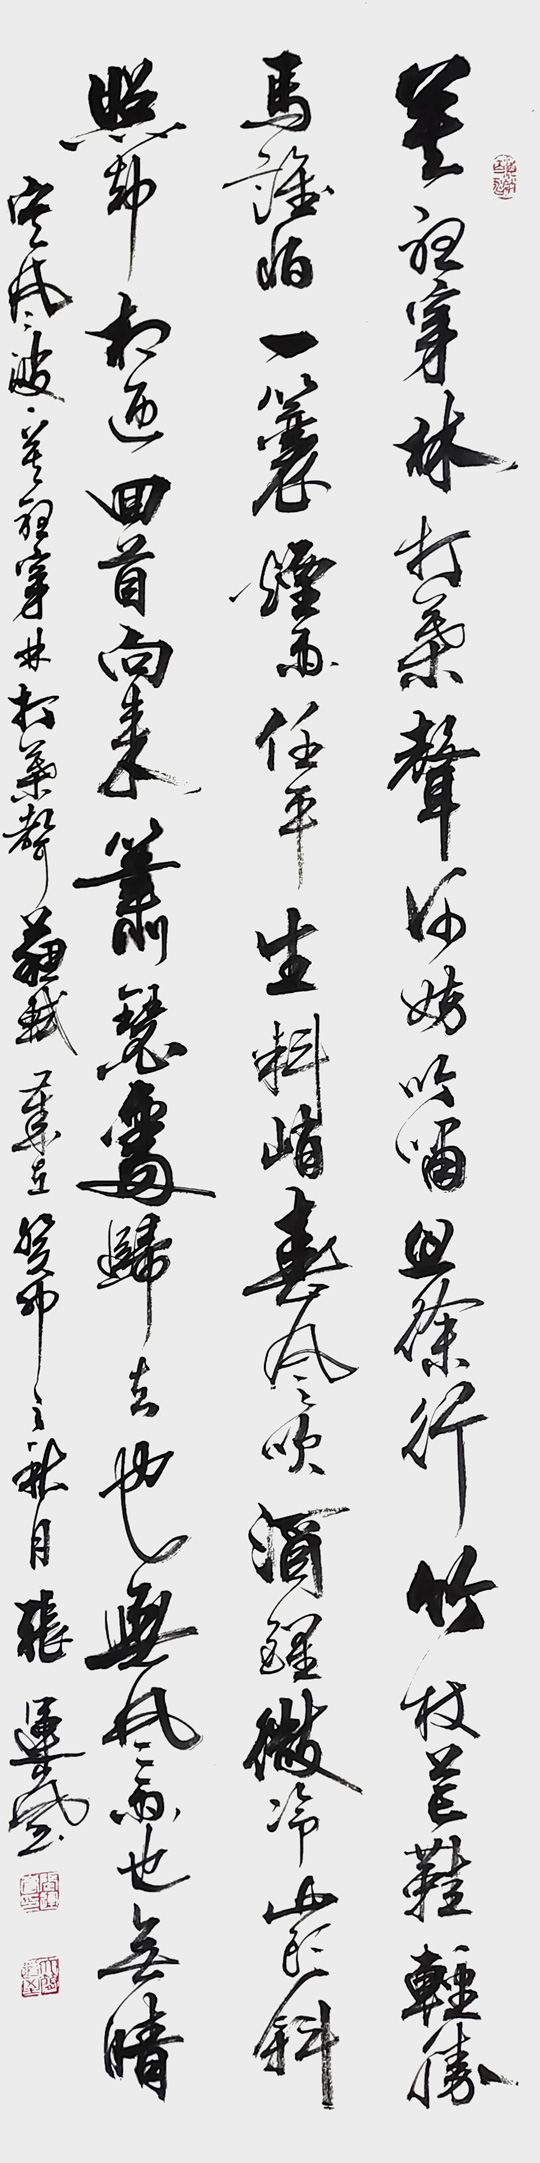 莫聽穿林打葉聲何妨吟嘯且徐行竹杖芒鞋輕勝
馬誰怕一蓑煙雨任平生料峭春風吹酒醒微冷山頭斜
照却相迎回首向來蕭瑟處歸去也無風雨也無晴
定風波莫聽穿林打葉聲蘇軾 癸卯之秋月張運